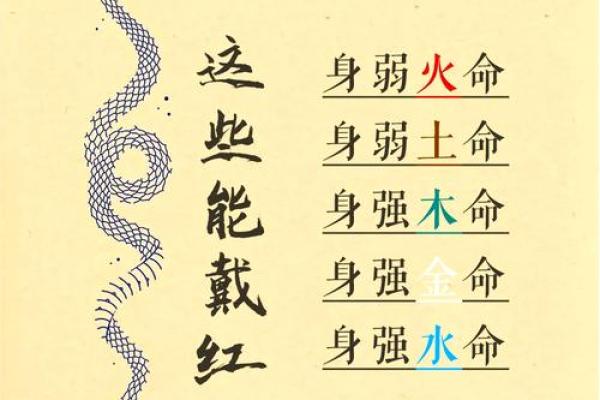 这些能戴红
身弱火命
身弱土命
身强木命
身强金命
身强水命